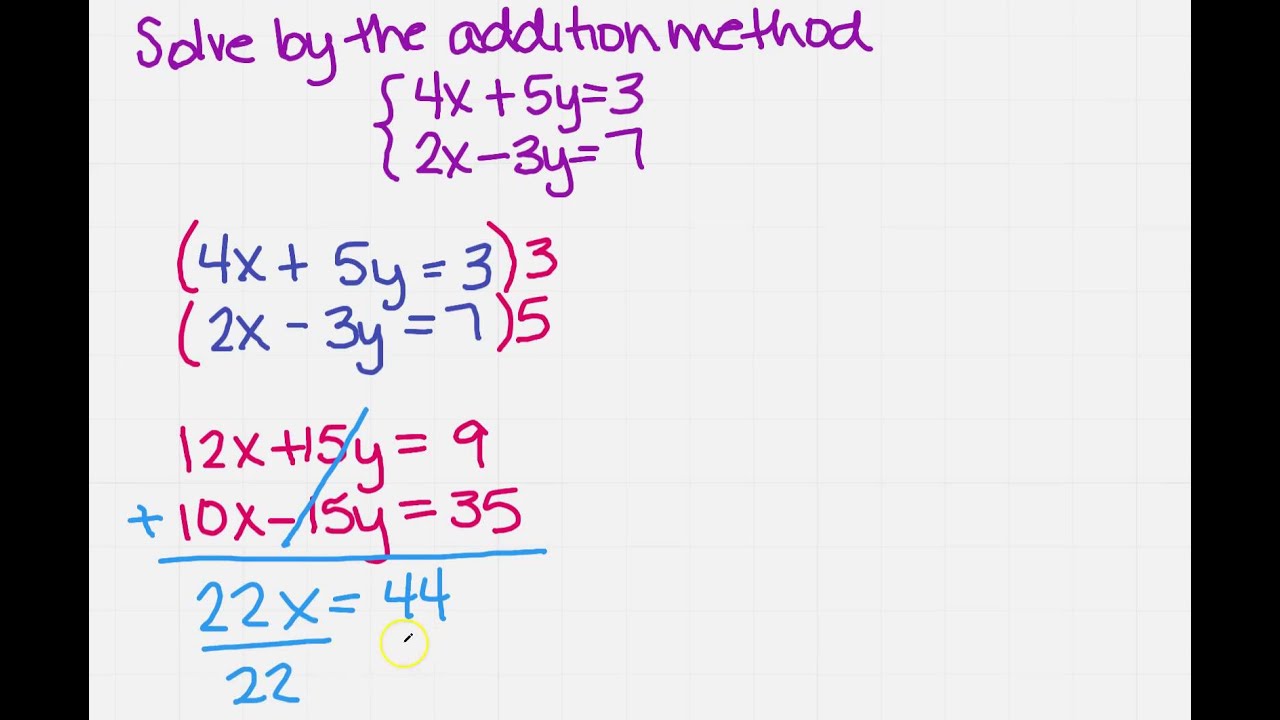 Solve by the addition method
4x+5y=3
2x-3y=7
(4x+ 5y=3)3
(2x-3y=7)5
12x+15y=9
+10x-15y=35
22x=44
22